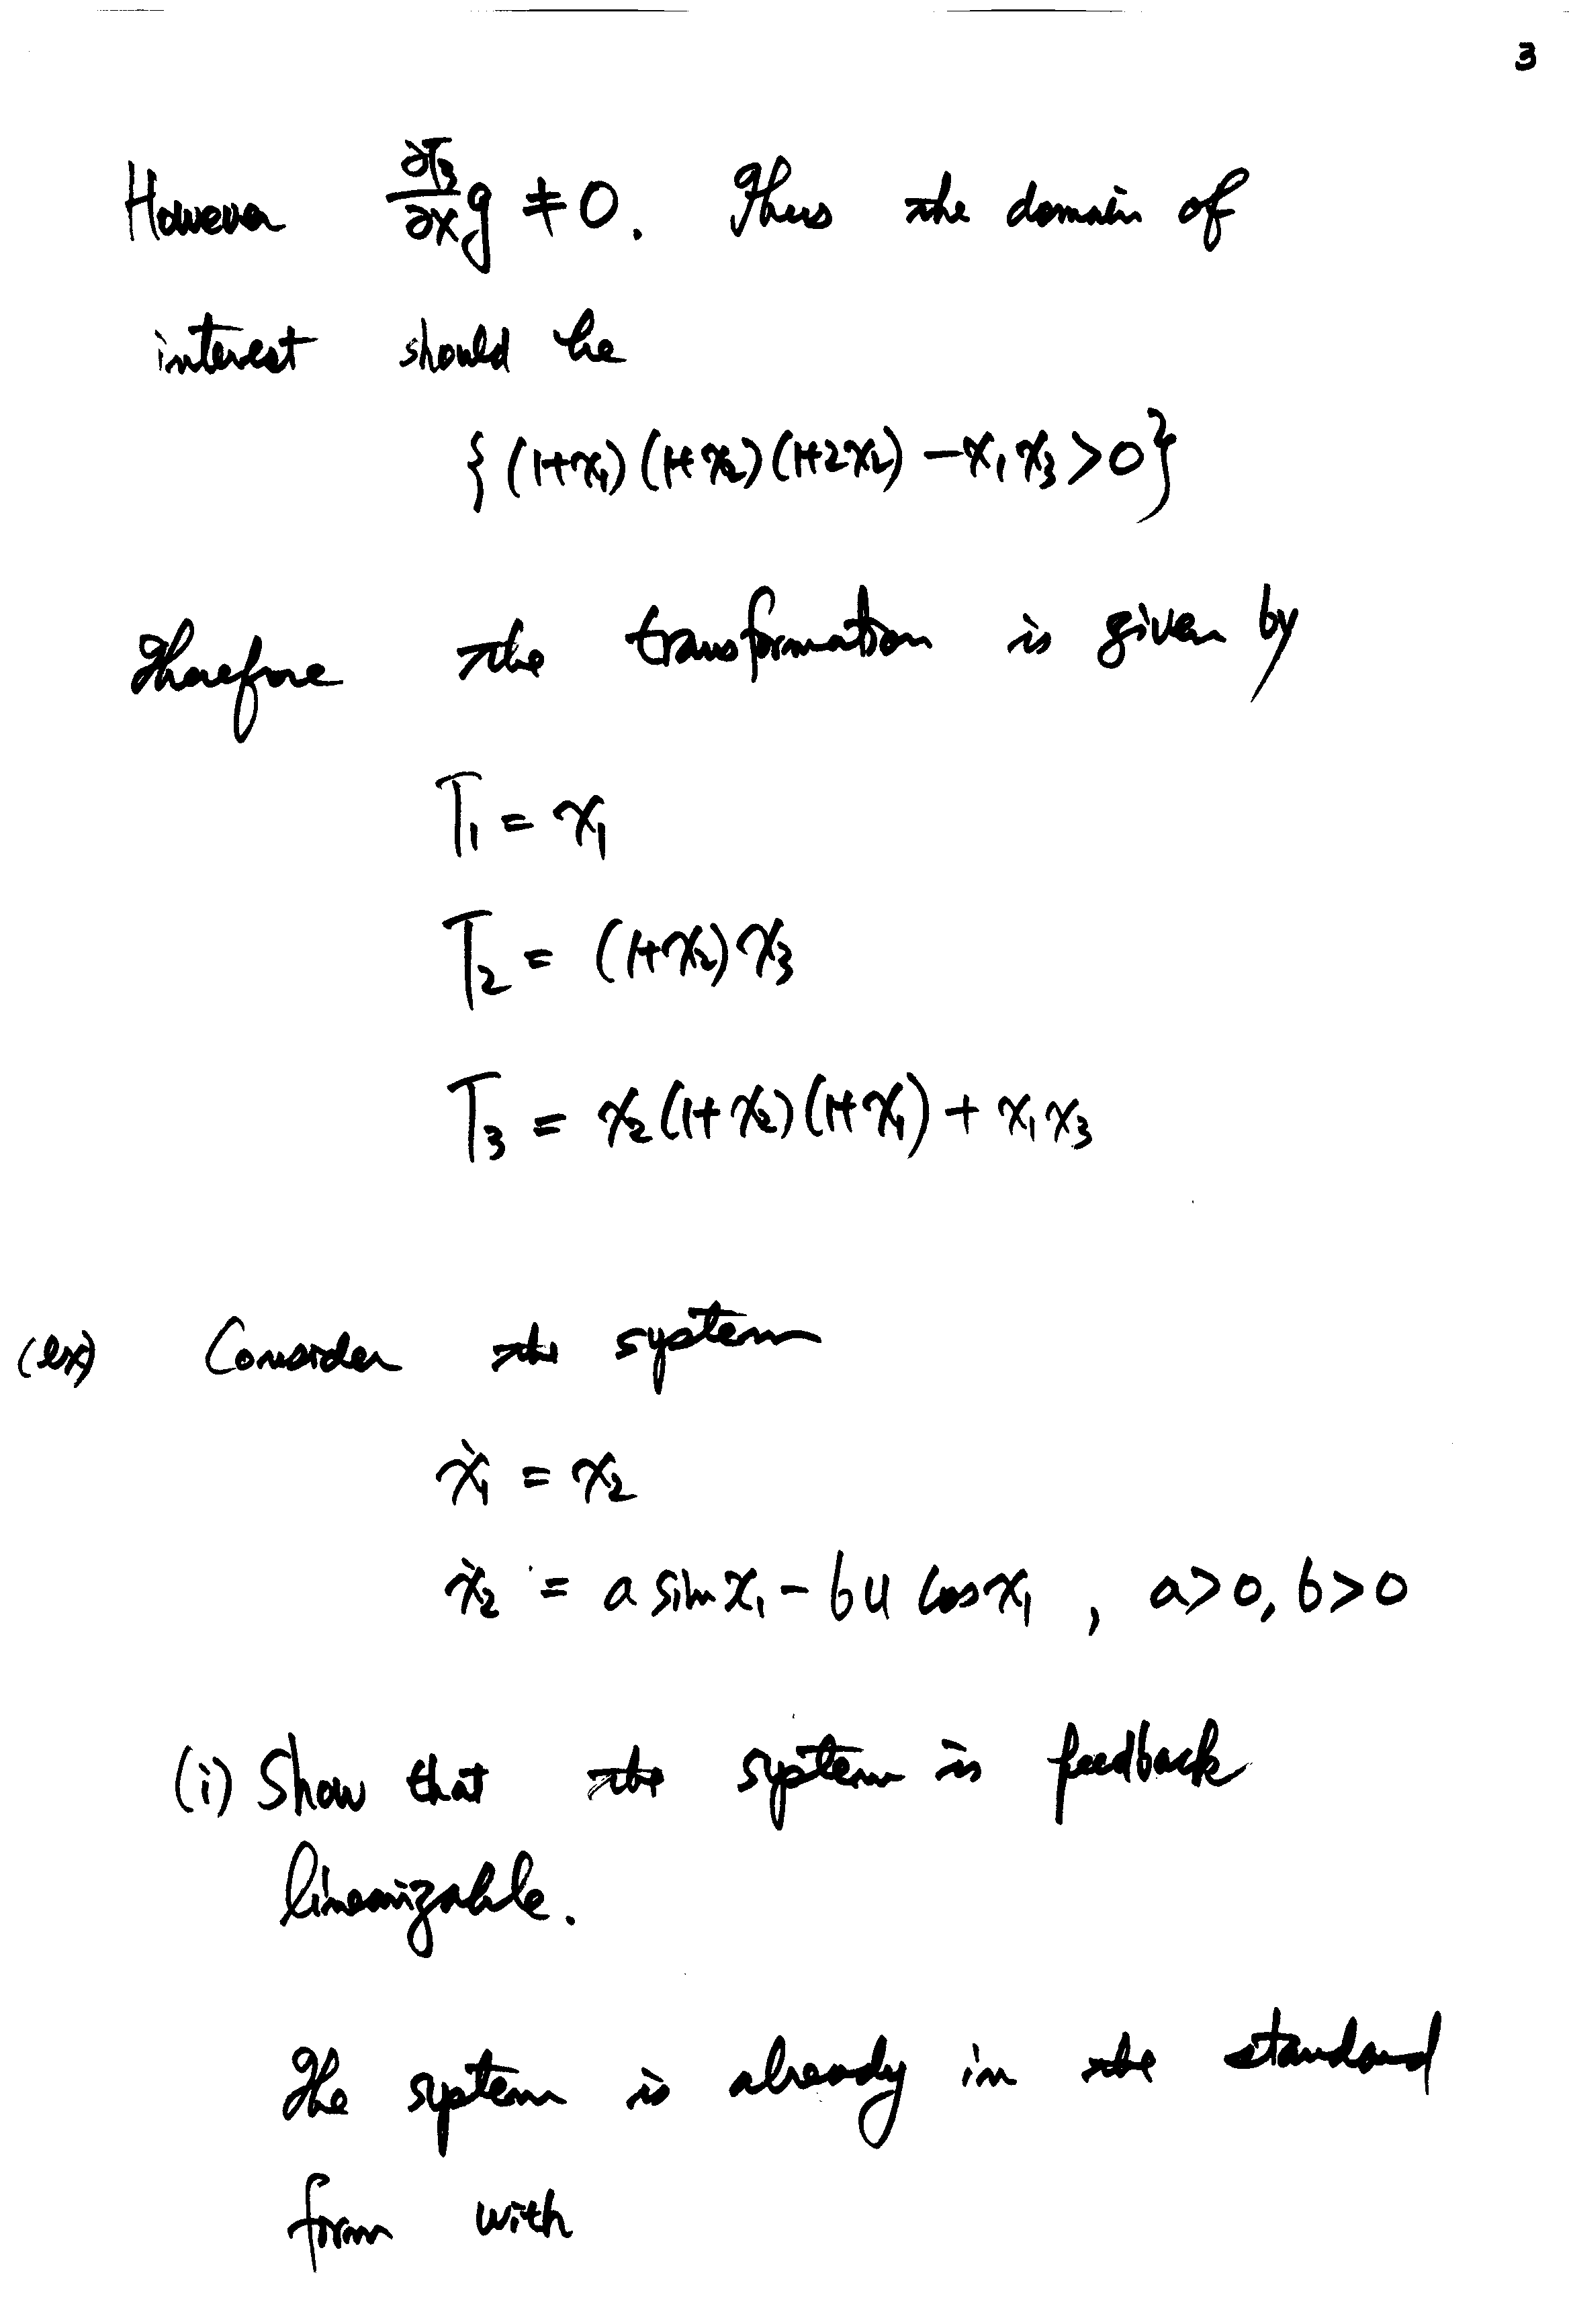 3
However ∂T₃/∂x g ≠ 0. Thus the domain of
interest should be
{ (1+x₁)(1+x₂)(1+2x₂) - x₁x₃ > 0 }
Therefore the transformation is given by
T₁ = x₁
T₂ = (1+x₂)x₃
T₃ = x₂(1+x₂)(1+x₁) + x₁x₃
(ex) Consider the system
ẋ₁ = x₂
ẋ₂ = a sin x₁ - bu cos x₁ , a>0, b>0
(i) Show that the system is feedback
linearizable.
The system is already in the standard
form with